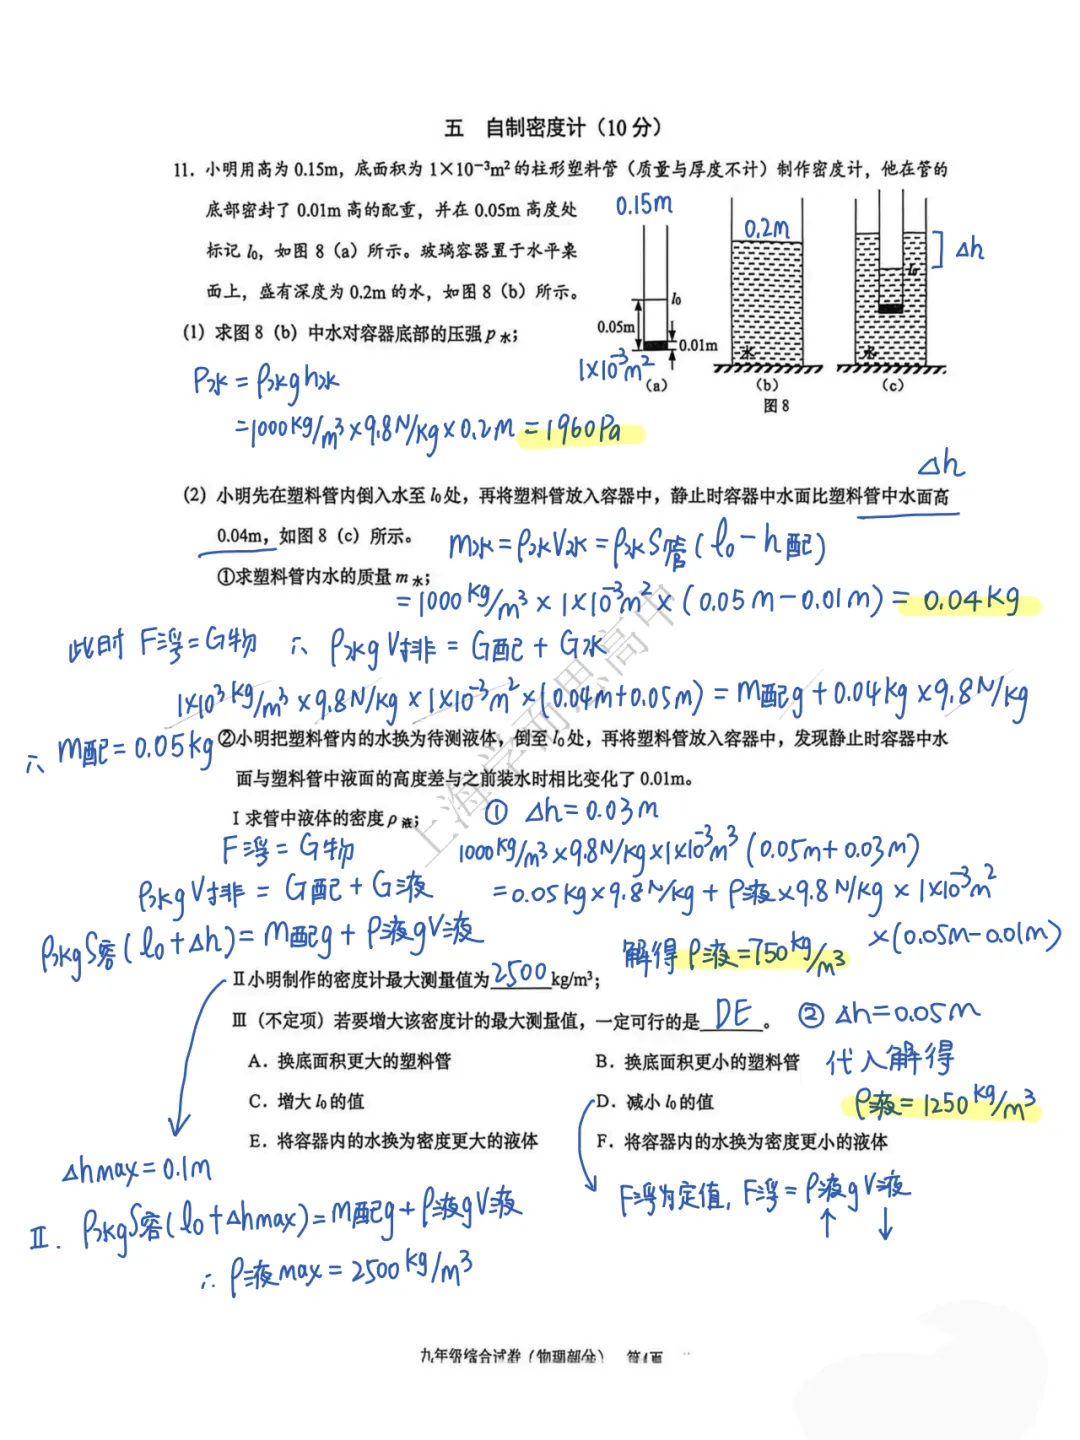 五 自制密度计（10 分）
11. 小明用高为 0.15m，底面积为 1×10⁻³m² 的柱形塑料管（质量与厚度不计）制作密度计，他在管的
底部密封了 0.01m 高的配重，并在 0.05m 高度处
标记 l₀，如图 8（a）所示。玻璃容器置于水平桌
面上，盛有深度为 0.2m 的水，如图 8（b）所示。
0.15m
0.2m
Δh
l₀
l₀
0.05m
0.01m
水
水
1×10⁻³m²
(a)
(b)
(c)
图 8
(1) 求图 8（b）中水对容器底部的压强 p水；
P水 = ρ水gh水
=1000kg/m³×9.8N/kg×0.2m = 1960Pa
Δh
(2) 小明先在塑料管内倒入水至 l₀ 处，再将塑料管放入容器中，静止时容器中水面比塑料管中水面高
0.04m，如图 8（c）所示。
m水=ρ水V水=ρ水S管(l₀-h配)
①求塑料管内水的质量 m水；
=1000kg/m³×1×10⁻³m²×(0.05m-0.01m) = 0.04kg
此时 F浮=G物 ∴ ρ水gV排 = G配 + G水
1×10³kg/m³×9.8N/kg×1×10⁻³m²×(0.04m+0.05m) = m配g + 0.04kg×9.8N/kg
∴ m配=0.05kg
②小明把塑料管内的水换为待测液体，倒至 l₀ 处，再将塑料管放入容器中，发现静止时容器中水
面与塑料管中液面的高度差与之前装水时相比变化了 0.01m。
Ⅰ求管中液体的密度 ρ液；
① Δh=0.03m
F浮=G物
1000kg/m³×9.8N/kg×1×10⁻³m³(0.05m+0.03m)
ρ水gV排 = G配 + G液
=0.05kg×9.8N/kg + ρ液×9.8N/kg×1×10⁻³m²
×(0.05m-0.01m)
ρ水gS容(l₀+Δh)=m配g+ρ液gV液
解得 ρ液=750kg/m³
Ⅱ小明制作的密度计最大测量值为2500kg/m³；
Ⅲ（不定项）若要增大该密度计的最大测量值，一定可行的是 DE 。
② Δh=0.05m
代入解得
ρ液=1250kg/m³
A．换底面积更大的塑料管
B．换底面积更小的塑料管
C．增大 l₀ 的值
D．减小 l₀ 的值
E．将容器内的水换为密度更大的液体
F．将容器内的水换为密度更小的液体
Δhmax=0.1m
F浮为定值，F浮=ρ液gV液
↑ ↓
Ⅱ. ρ水gS容(l₀+Δhmax)=m配g+ρ液gV液
∴ ρ液max=2500kg/m³
九年级综合试卷（物理部分） 第4页
上海学而思高中